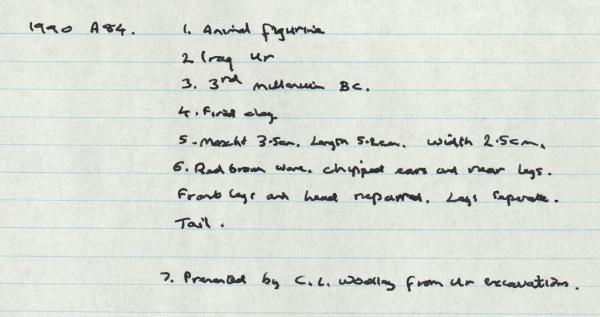 1990 A84. 1. Animal figurine
2 Iraq Ur
3. 3rd millennium BC.
4. Fired clay
5. Height 3.5cm. Length 5.2cm. Width 2.5cm.
6. Red brown ware. chipped ears and rear legs.
Front legs and head repaired. Legs separate.
Tail.
7. Presented by C. L. Woolley from Ur excavation.